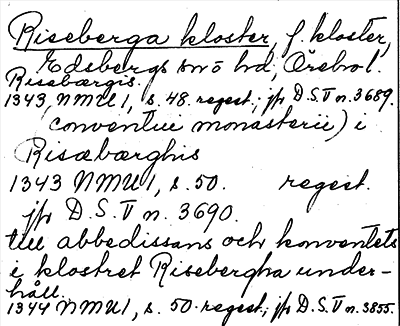 Riseberga kloster, f. kloster,
Edsbergs sn o hd, Örebro l.
Risabærgis.
1343, NMU 1, s. 48. regest.; jfr D.S. V n. 3689.
conventui monasterii) i
Risabærghis
1343 NMU 1, s. 50. regest.
jfr D.S. V n. 3690.
till abbedissans och konventets
i klostret Risebergha under-
håll.
1344 NMU 1, s. 50. regest.; jfr D.S. V n. 3855.